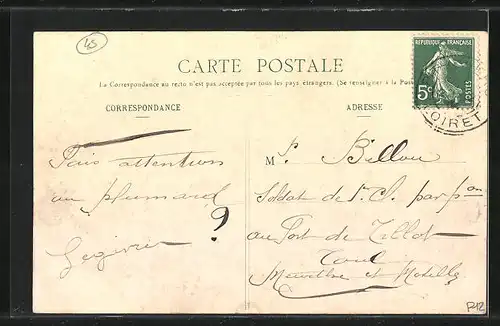 45
CARTE POSTALE
La Correspondance au recto n'est pas acceptée par tous les pays étrangers. (Se renseigner à la Pos
CORRESPONDANCE
ADRESSE
REPUBLIQUE FRANÇAISE
5c
POSTES
LOIRET
Fais attention
au plumard
?
M. P. Billou
Soldat de 1re Cl. par
au Fort de Tillot
Toul
Meurthe et Moselle